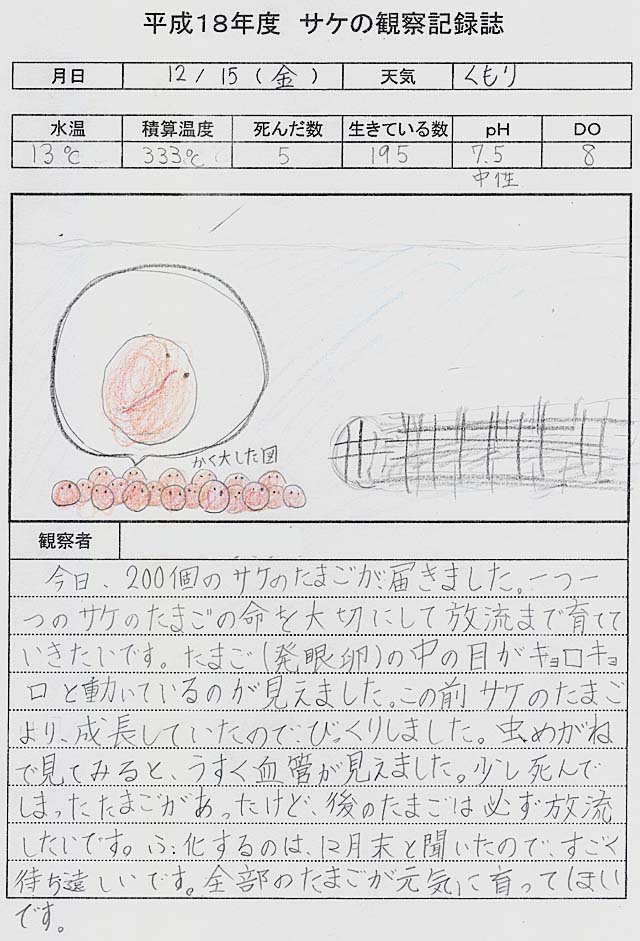 平成18年度 サケの観察記録誌
月日 12/15(金) 天気 くもり
水温 積算温度 死んだ数 生きている数 pH DO
13℃ 333℃ 5 195 7.5 8
中性
かく大した図
観察者
今日、200個のサケのたまごが届きました。一つ一
つのサケのたまごの命を大切にして放流まで育てて
いきたいです。たまご(発眼卵)の中の目がキョロキョ
ロと動いているのが見えました。この前サケのたまご
より、成長していたので、びっくりしました。虫めがね
で見てみると、うすく血管が見えました。少し死んで
しまったたまごがあったけど、後のたまごは必ず放流
したいです。ふ化するのは、12月末と聞いたので、すごく
待ち遠しいです。全部のたまごが元気に育ってほしい
です。